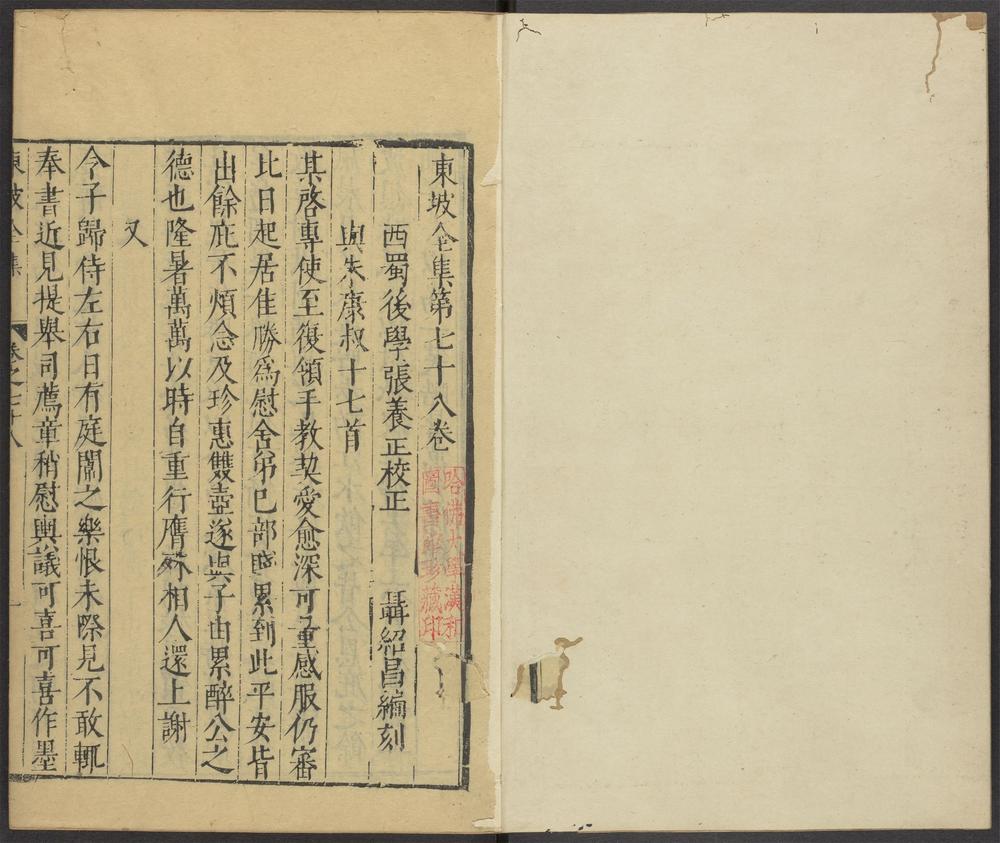 東坡全集第七十八卷
西蜀後學張養正校正 聶紹昌編刻
與朱康叔十七首
某啓專使至復領手教契愛愈深可量感服仍審
比日起居佳勝爲慰舍弟已部賤累到此平安皆
出餘庇不煩念及珍惠雙壺遂與子由累醉公之
德也隆暑萬萬以時自重行膺殊相人還上謝
又
令子歸侍左右日有庭闈之樂恨未際見不敢輒
奉書近見提舉司薦章稍慰輿議可喜可喜作墨
東坡全集 卷之七十八 一
哈佛大學漢和
圖書館珍藏印